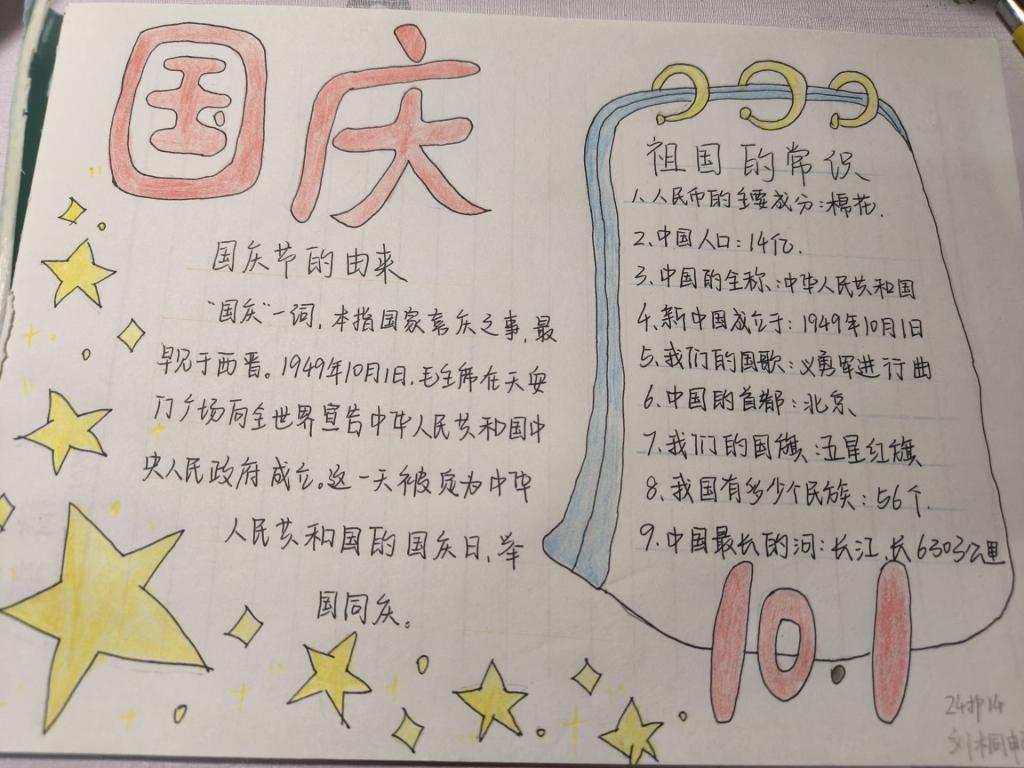 国庆
国庆节的由来
"国庆"一词,本指国家喜庆之事,最
早见于西晋。1949年10月1日,毛主席在天安
门广场向全世界宣告中华人民共和国中
央人民政府成立。这一天被定为中华
人民共和国的国庆日,举
国同庆。
祖国的常识
1.人民币的主要成分:棉花.
2.中国人口:14亿.
3.中国的全称:中华人民共和国
4.新中国成立于:1949年10月1日
5.我们的国歌:义勇军进行曲
6.中国的首都:北京、
7.我们的国旗:五星红旗
8.我国有多少个民族:56个.
9.中国最长的河:长江,长6303公里
10.1
24护14
刘桐